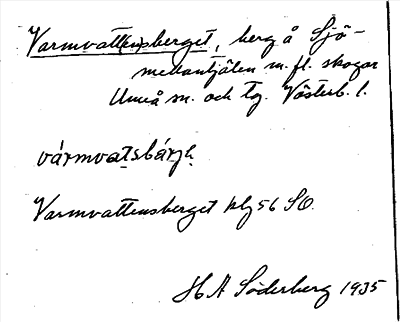 Varmvatt(en)sberget, berg å Sjö-
mellantjälen m. fl. skogar
Umeå sn. och tg. Västerb. l.
vármvatsbárjh.
Varmvattensberget klj 56 SO.
H A Söderberg 1935